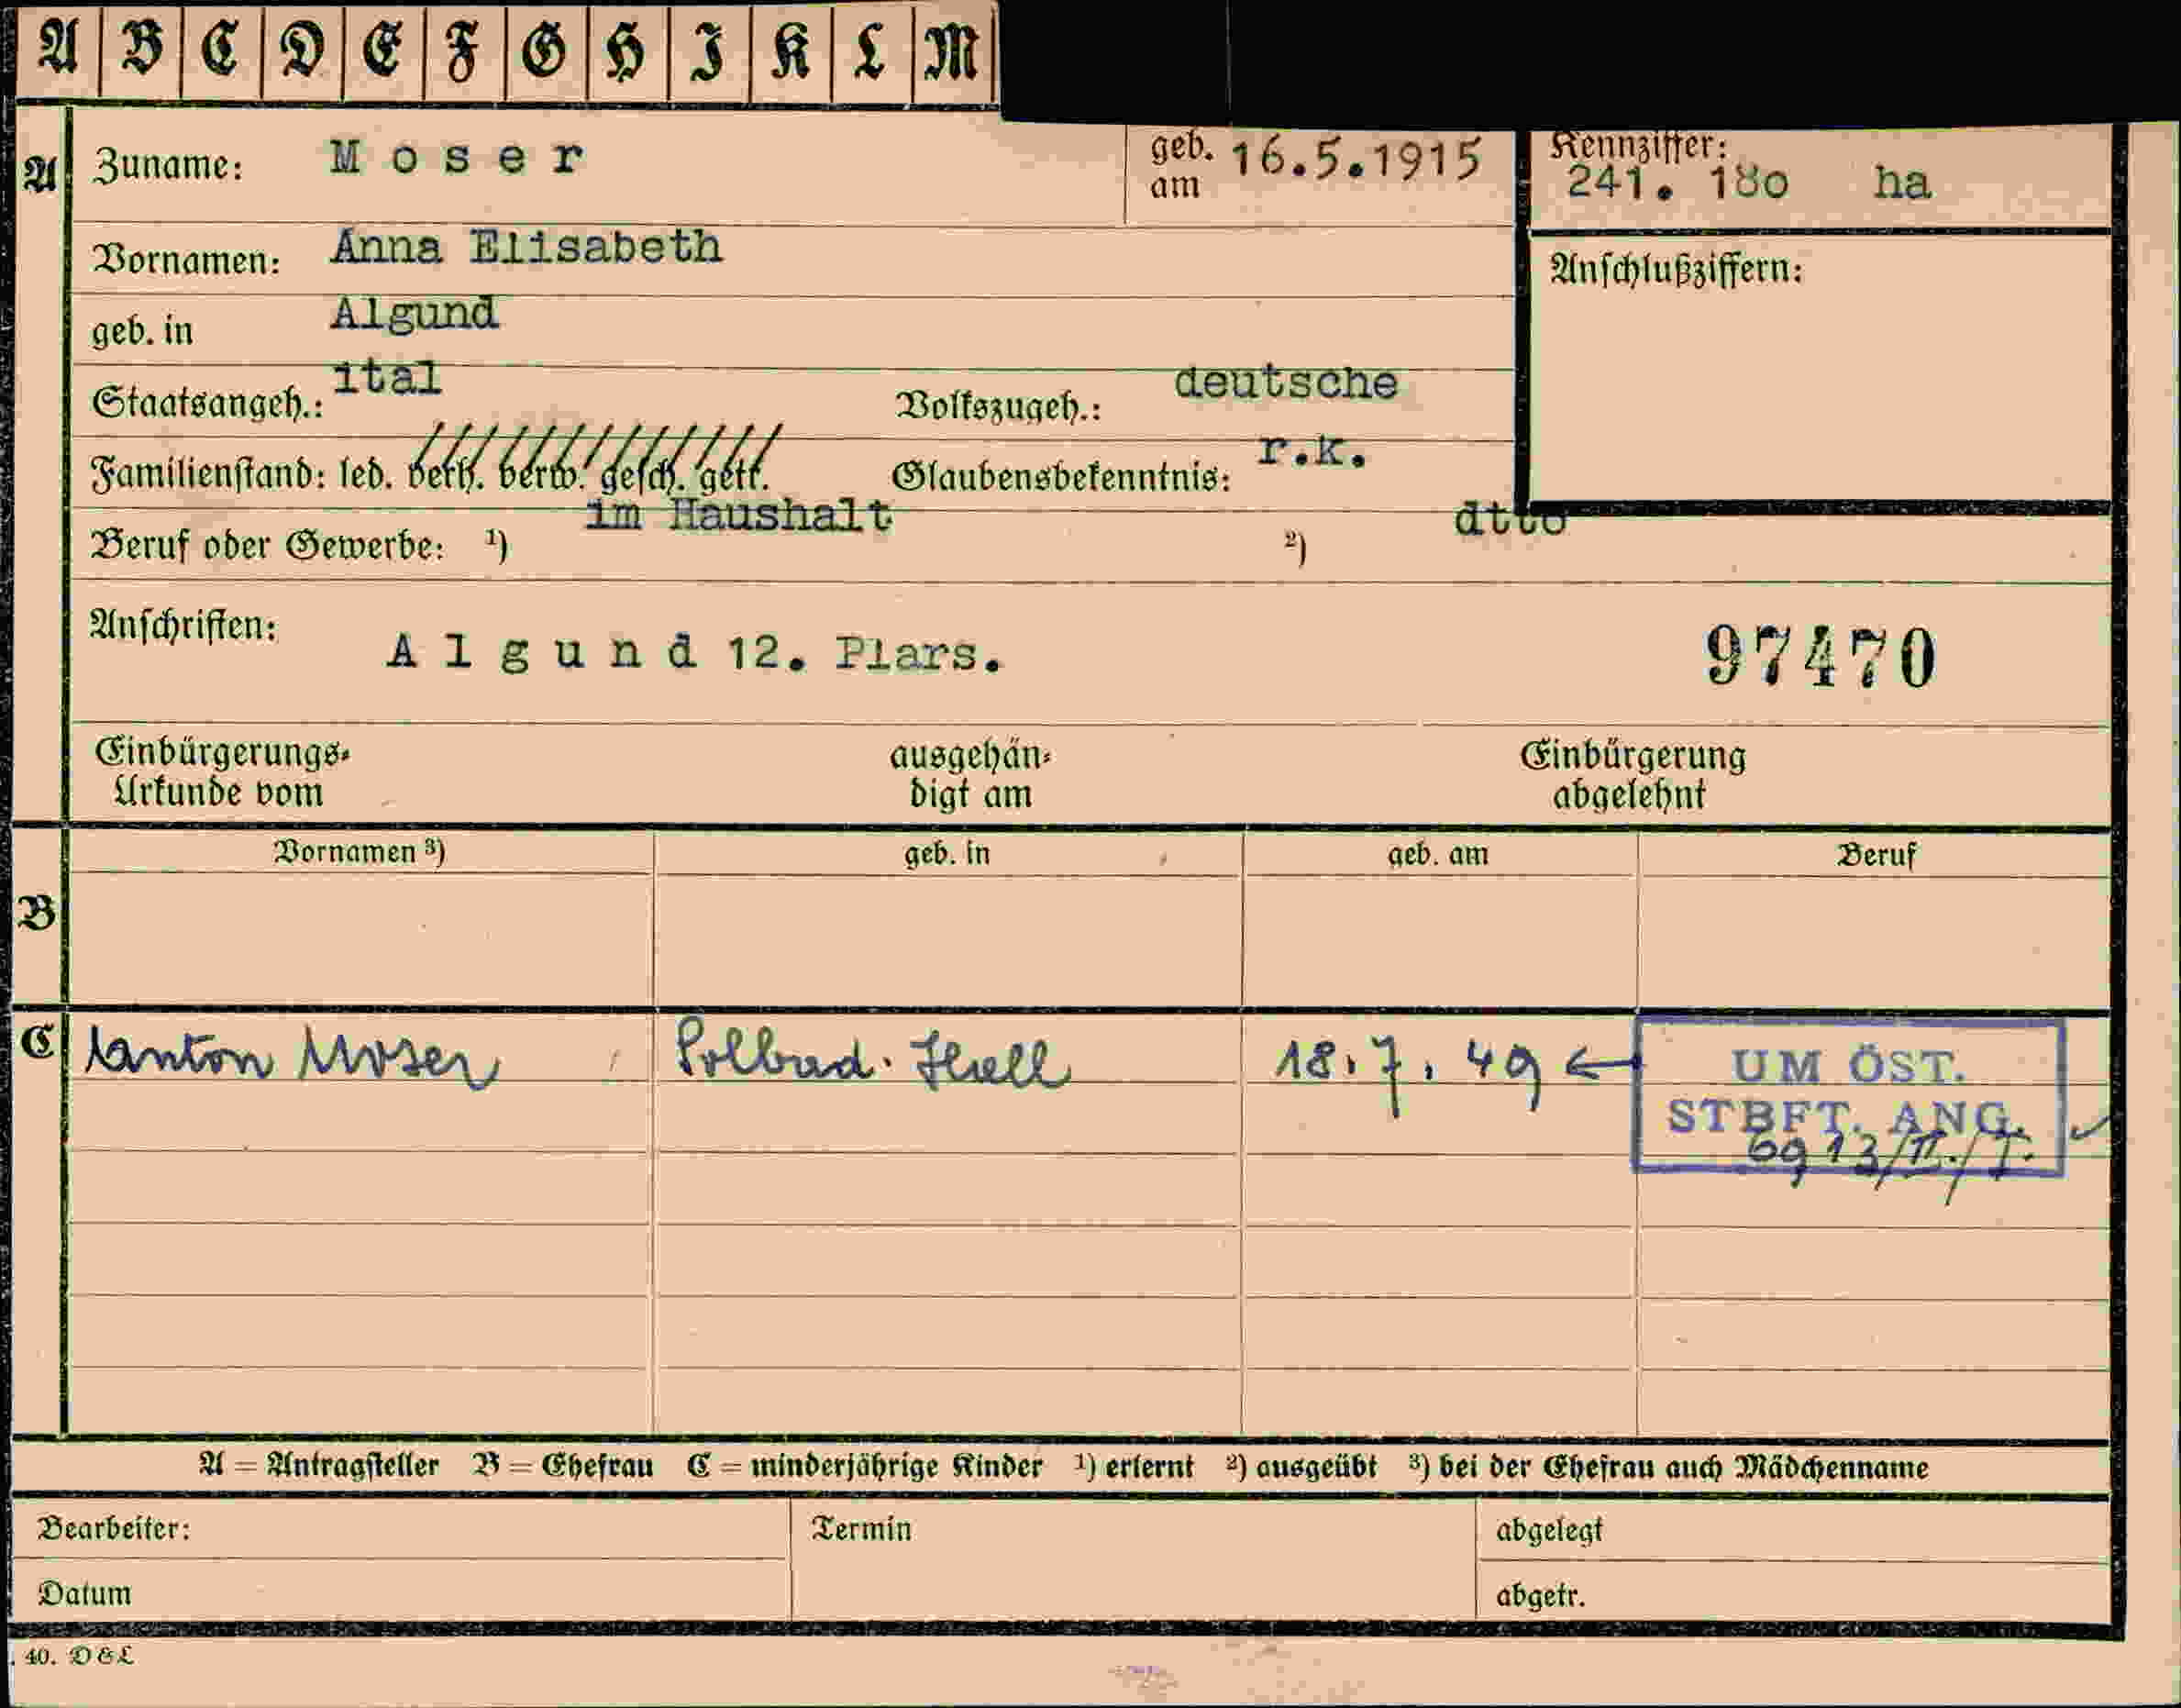 A B C D E F G H I K L M
A Zuname: Moser geb. am 16.5.1915 Kennziffer: 241. 180 ha
Vornamen: Anna Elisabeth Anschlußziffern:
geb. in Algund
Staatsangeh.: ital Volkszugeh.: deutsche
Familienstand: led. verh. verw. gesch. getr. Glaubensbekenntnis: r.k.
Beruf oder Gewerbe: ¹) im Haushalt ²) dtto
Anschriften: Algund 12. Plars. 97470
Einbürgerungs- ausgehän- Einbürgerung
Urkunde vom digt am abgelehnt
Vornamen ³) geb. in geb. am Beruf
B
C Anton Moser Solbad. Hall 18.7.49 ← UM ÖST.
STBFT. ANG.
6913/II./T.
A = Antragsteller B = Ehefrau C = minderjährige Kinder ¹) erlernt ²) ausgeübt ³) bei der Ehefrau auch Mädchenname
Bearbeiter: Termin abgelegt
Datum abgetr.
40. D & L